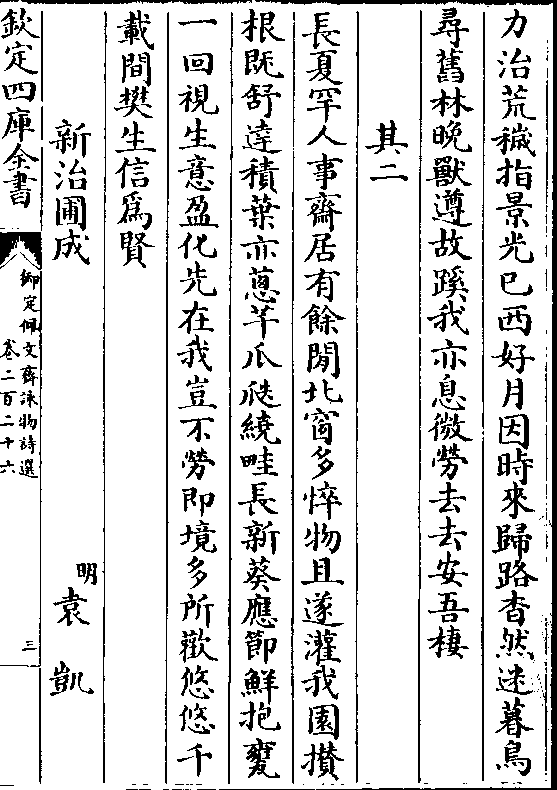 力治荒穢指景光已西好月因時來歸路杳然迷暮鳥
尋舊林晩獸遵故蹊我亦息微勞去去安吾棲
其二
長夏罕人事齋居有餘閒北窗多悴物且遂灌我園攅
根既舒達積葉亦蔥芊瓜瓞繞畦長新葵應節鮮抱甕
一回視生意盈化先在我豈不勞即境多所歡悠悠千
載間樊生信爲賢
新治圃成
明
袁凱
欽定四庫全書
御定佩文齋詠物詩選
卷二百二十六
三